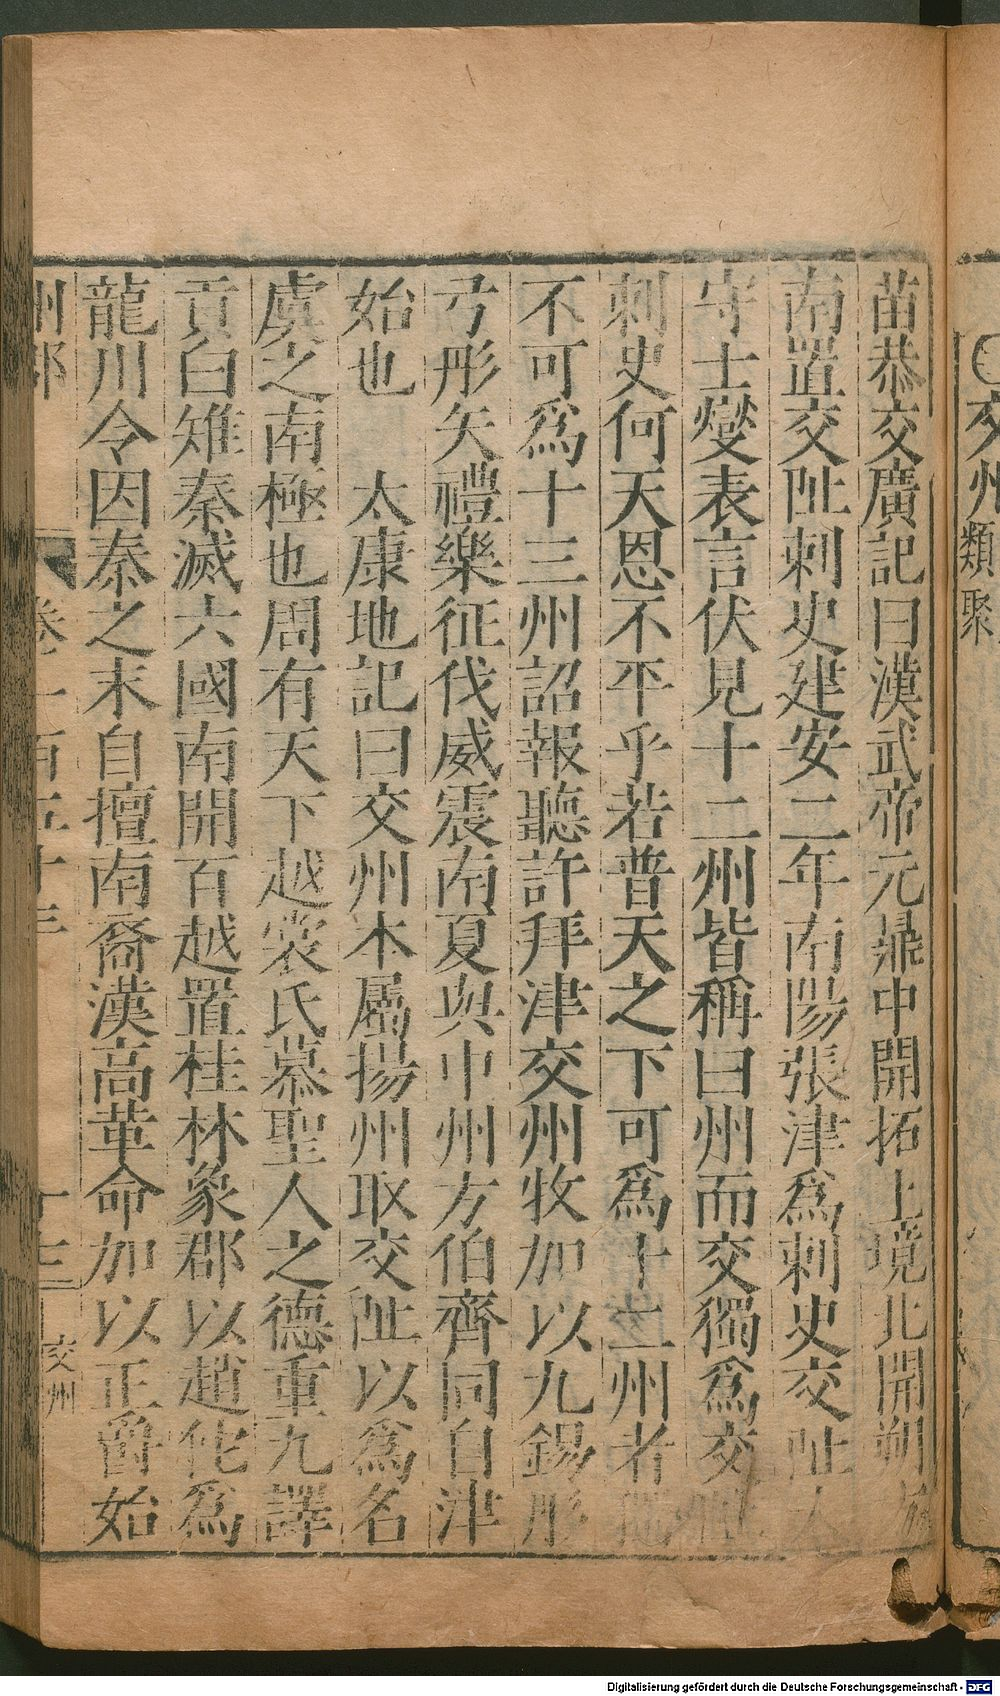 交州類聚
苗恭交廣記曰漢武帝元鼎中開拓土境北開朔
南置交阯刺史建安二年南陽張津爲刺史交阯
守士燮表言伏見十二州皆稱曰州而交獨爲交
刺史何天恩不平乎若普天之下可爲十二州者
不可爲十三州詔報聽許拜津交州牧加以九錫彤
弓彤矢禮樂征伐威震南夏與中州方伯齊同自津
始也 太康地記曰交州本屬揚州取交阯以爲名
虞之南極也周有天下越裳氏慕聖人之德重九譯
貢白雉秦滅六國南開百越置桂林象郡以趙佗爲
龍川令因秦之末自擅南裔漢高革命加以正爵始
州郡 卷一百五十三 十三 交州
Digitalisierung gefördert durch die Deutsche Forschungsgemeinschaft - DFG